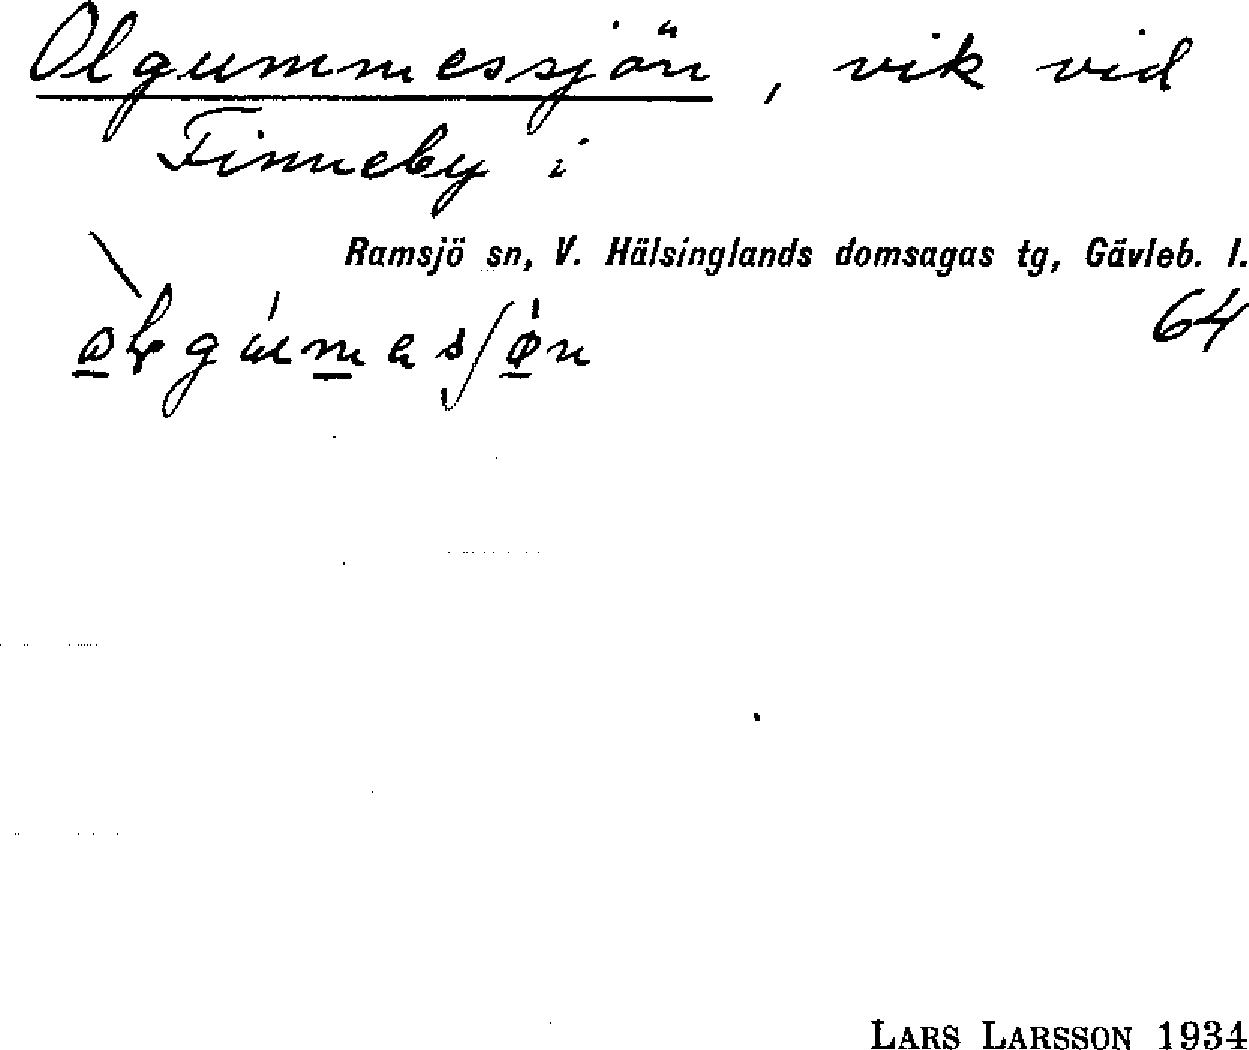 Olgummessjön, vik vid
Finneby i
Ramsjö sn, V. Hälsinglands domsagas tg, Gävleb. l.
64
LARS LARSSON 1934